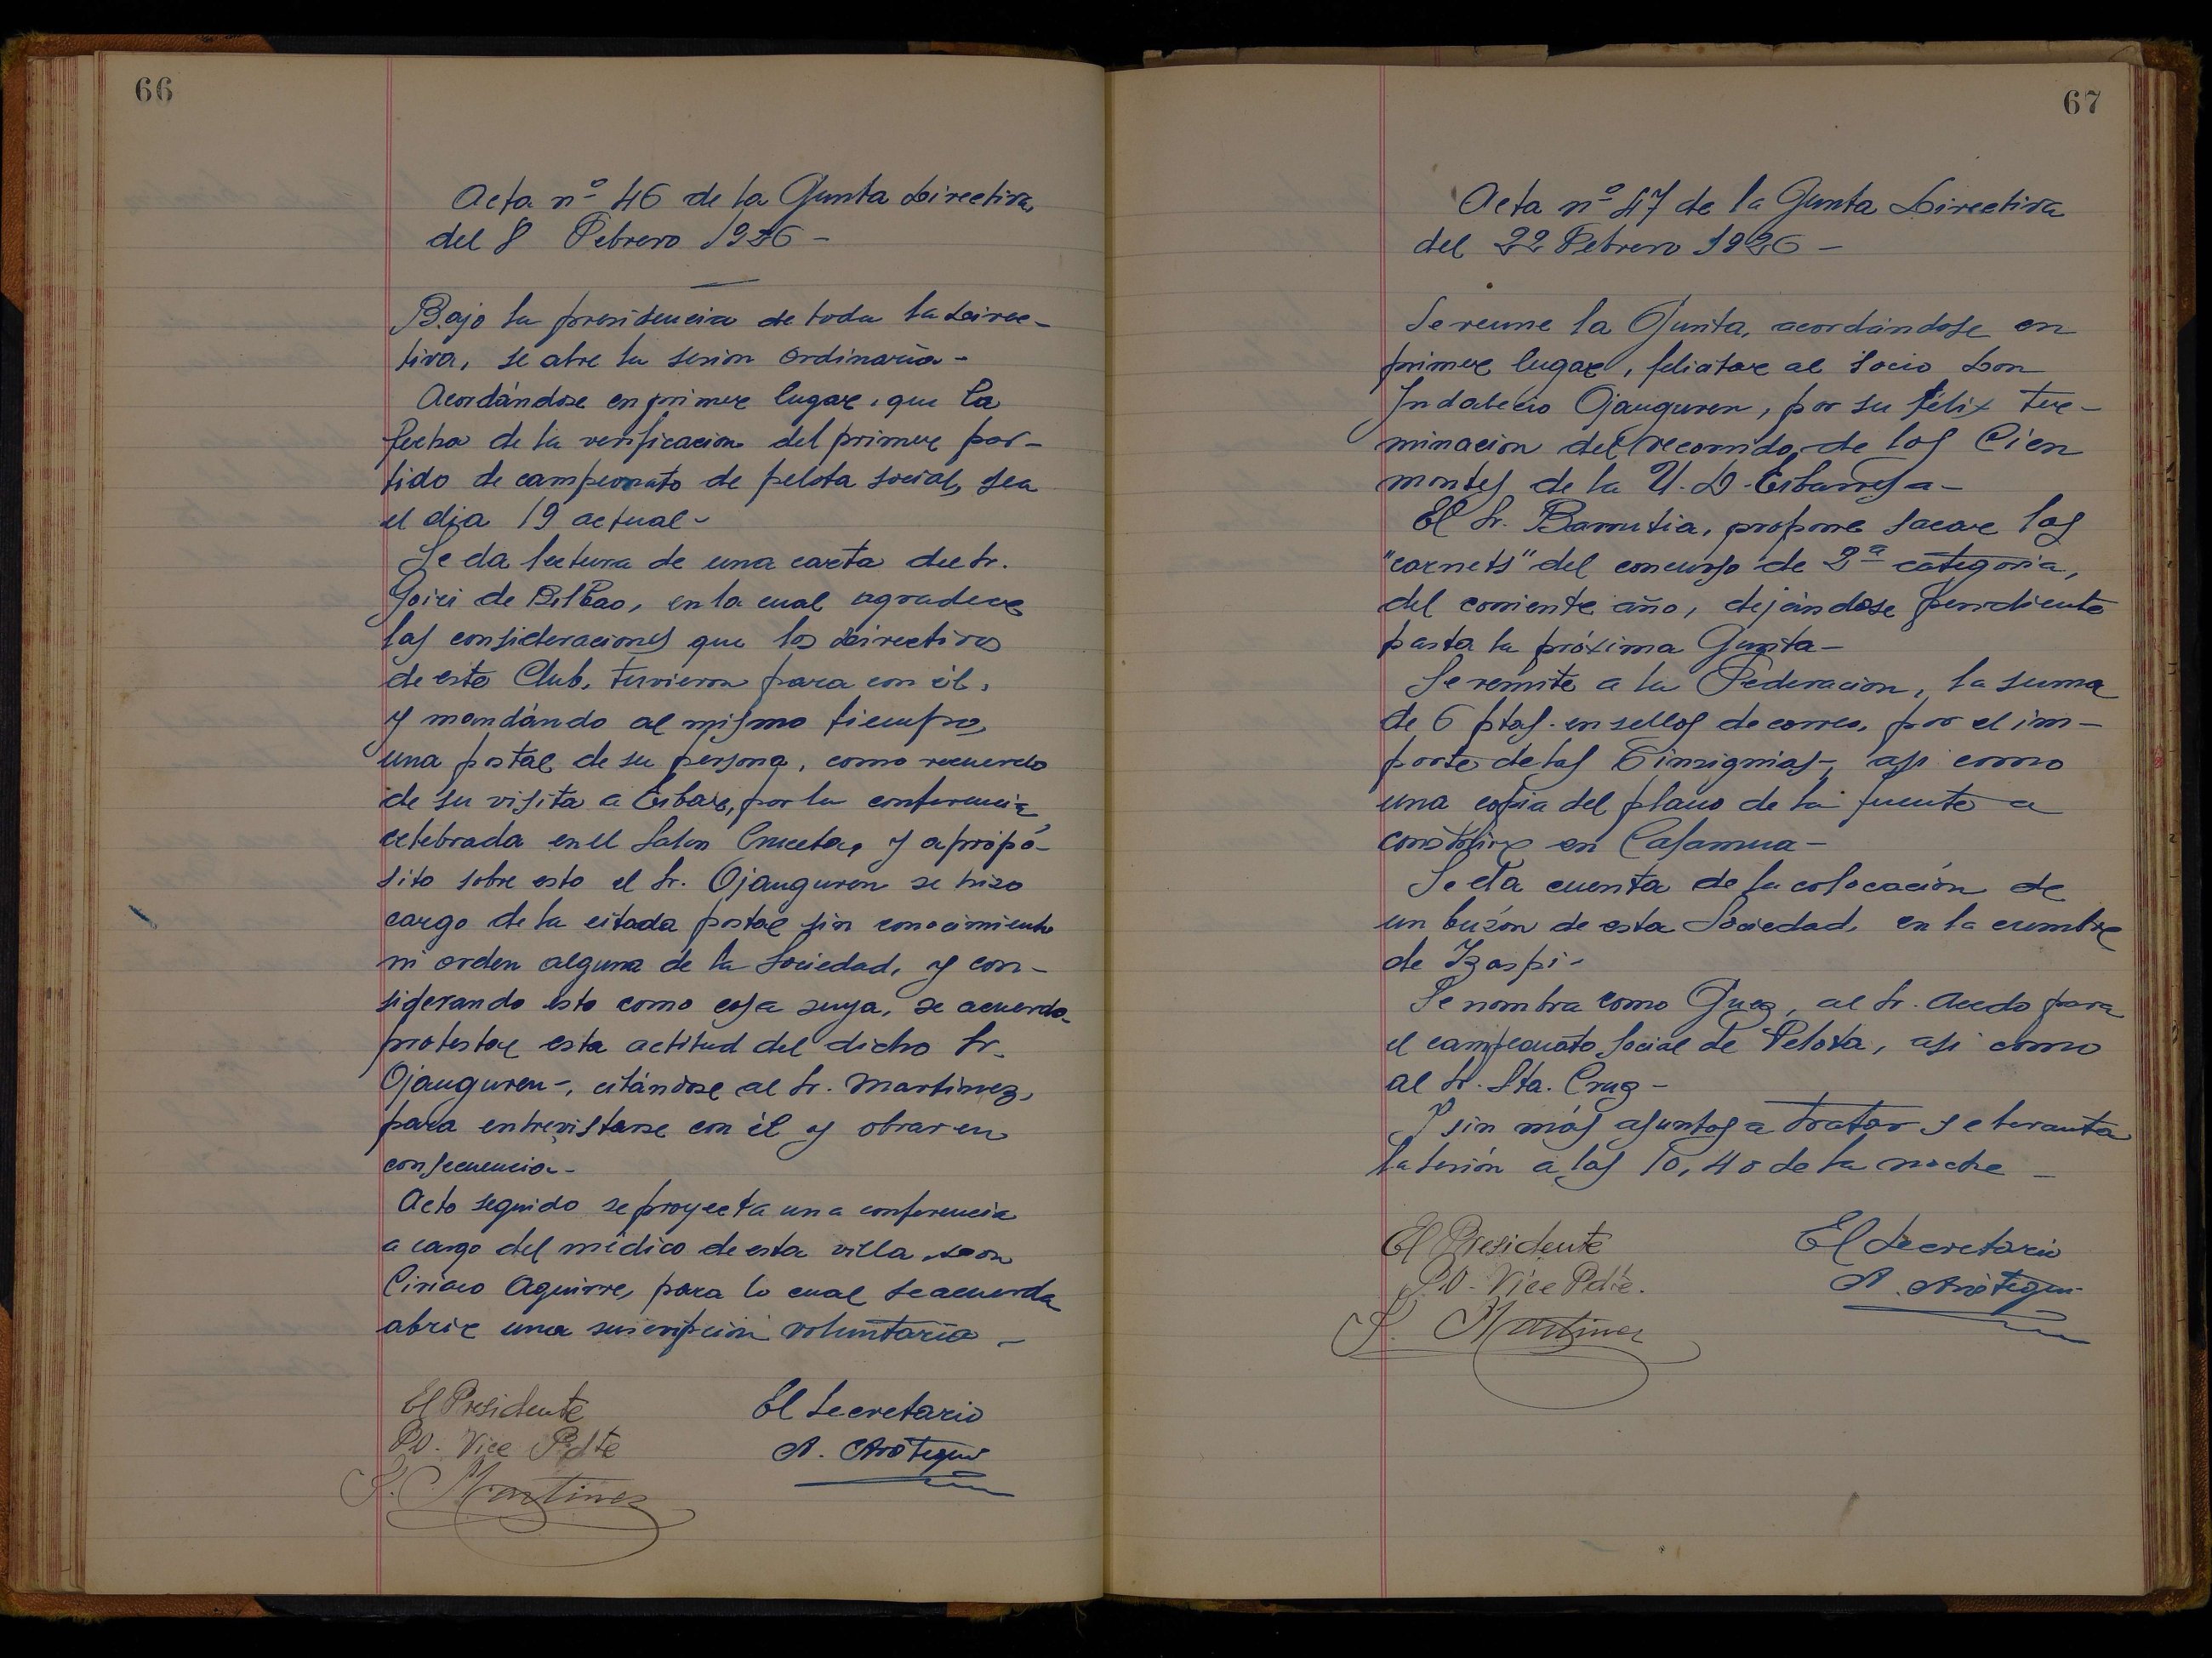 66
Acta nº 46 de la Junta Directiva
del 8 Febrero 1926 -
Bajo la presidencia de toda la Direc-
tiva, se abre la sesion ordinaria -
Acordándose en primer lugar, que la
fecha de la verificacion del primer par-
tido de campeonato de pelota social, sea
el dia 19 actual -
Se da lectura de una carta del Sr.
Goiri de Bilbao, en la cual agradece
las consideraciones que los directivos
de este Club, tuvieron para con él,
y mandándo al mismo tiempo,
una postal de su persona, como recuerdo
de su visita a Eibar, por la conferencia,
celebrada en el Salon Cruceta, y apropó-
sito sobre esto el Sr. Ojanguren se hizo
cargo de la citada postal sin conocimiento
ni orden alguna de la Sociedad, y con-
siderando esto como cosa suya, se acuerda
protestar esta actitud del dicho Sr.
Ojanguren -, citándose al Sr. Martinez,
para entrevistarse con él y obrar en
consecuencia -
Acto seguido se proyecta una conferencia
a cargo del médico de esta villa, Don
Ciriaco Aguirre, para lo cual se acuerda
abrir una suscripción voluntaria -
El Presidente
P.O. Vice Pdte
S. Martinez
El Secretario
A. Arótegui
67
Acta nº 47 de la Junta Directiva
del 22 Febrero 1926 -
Se reune la Junta, acordándose en
primer lugar, felicitar al socio Don
Indalecio Ojanguren, por su félix ter-
minacion del recorrido, de los Cien
montes de la U. D. Eibarresa -
El Sr. Barrutia, propone sacar los
"carnets" del concurso de 2ª categoria,
del corriente año, dejándose pendiente
hasta la próxima Junta -
Se remite a la Federacion, la suma
de 6 ptas. en sellos de correo, por el im-
porte de las 6 insignias -, asi como
una copia del plano de la fuente a
constrúir en Casamua -
Se da cuenta de la colocación de
un buzón de esta Sociedad, en la cumbre
de Izaspi -
Se nombra como Juez, al Sr. Acedo para
el campeonato Social de Pelota, asi como
al Sr. Sta. Cruz -
Y sin más asuntos a tratar se levanta
la sesión a las 10,40 de la noche -
El Presidente
P.O. Vice Pdte.
S. Martinez
El Secretario
A. Arótegui